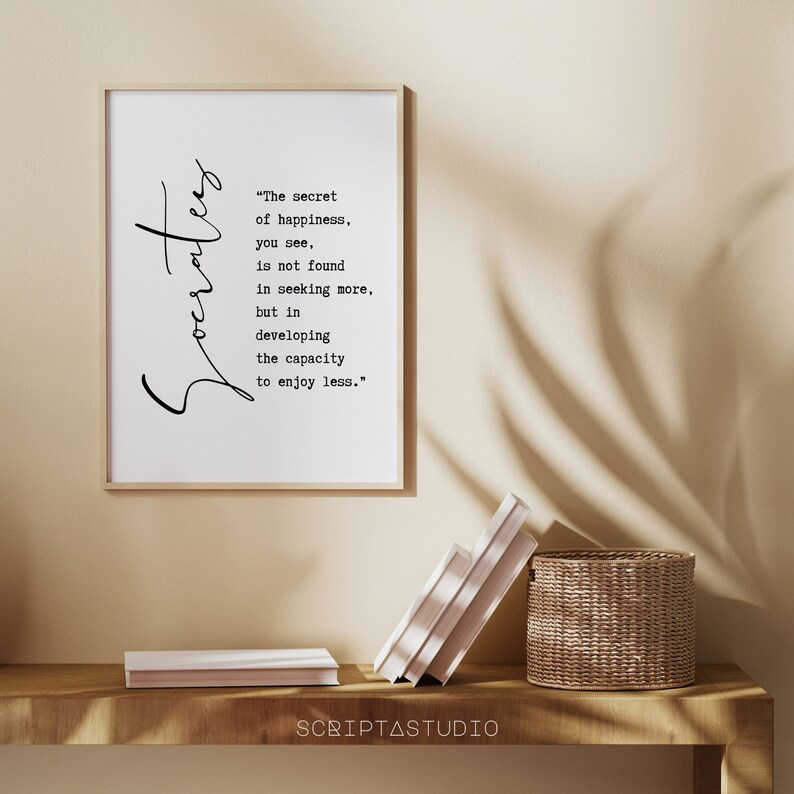 Socrates
“The secret
of happiness,
you see,
is not found
in seeking more,
but in
developing
the capacity
to enjoy less.”
SCRIPTASTUDIO